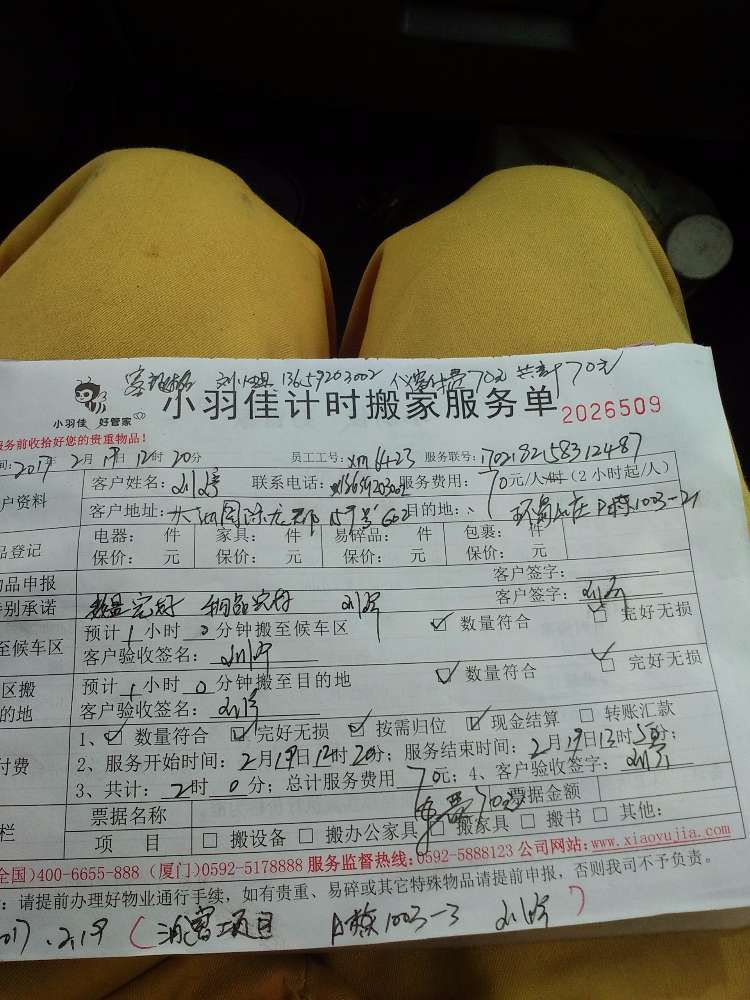 客 刘 13659203002 70元 共计70元
小羽佳 好管家
小羽佳计时搬家服务单 2026509
服务前收拾好您的贵重物品!
间:2017年2月19日12时20分 员工工号:xm6423 服务联号:17021821583124​87
户资料 客户姓名:刘 联系电话:13659203002 服务费用:70元/人/时(2小时起/人)
客户地址: 目的地: 1003-21
品登记 电器: 件 家具: 件 易碎品: 件 包裹: 件
保价: 元 保价: 元 保价: 元 保价: 元
物品申报 客户签字:
特别承诺 数量完好 物品完好 刘 客户签字:刘
至候车区 预计1小时0分钟搬至候车区 数量符合 完好无损
客户验收签名:刘
区搬 预计1小时0分钟搬至目的地 数量符合 完好无损
的地 客户验收签名:刘
付费 1、数量符合 完好无损 按需归位 现金结算 转账汇款
2、服务开始时间:2月19日12时20分;服务结束时间:2月19日13时50分;
3、共计:2时0分;总计服务费用70元;4、客户验收签字:刘
栏 票据名称 70元 票据金额
项 目 搬设备 搬办公家具 搬家具 搬书 其他:
全国)400-6655-888 (厦门)0592-5178888 服务监督热线:0592-5888123 公司网站:www.xiaoyujia.com
:请提前办理好物业通行手续,如有贵重、易碎或其它特殊物品请提前申报,否则我司不予负责。
2017.2.19 ( 项目 A栋1003-3 刘 )